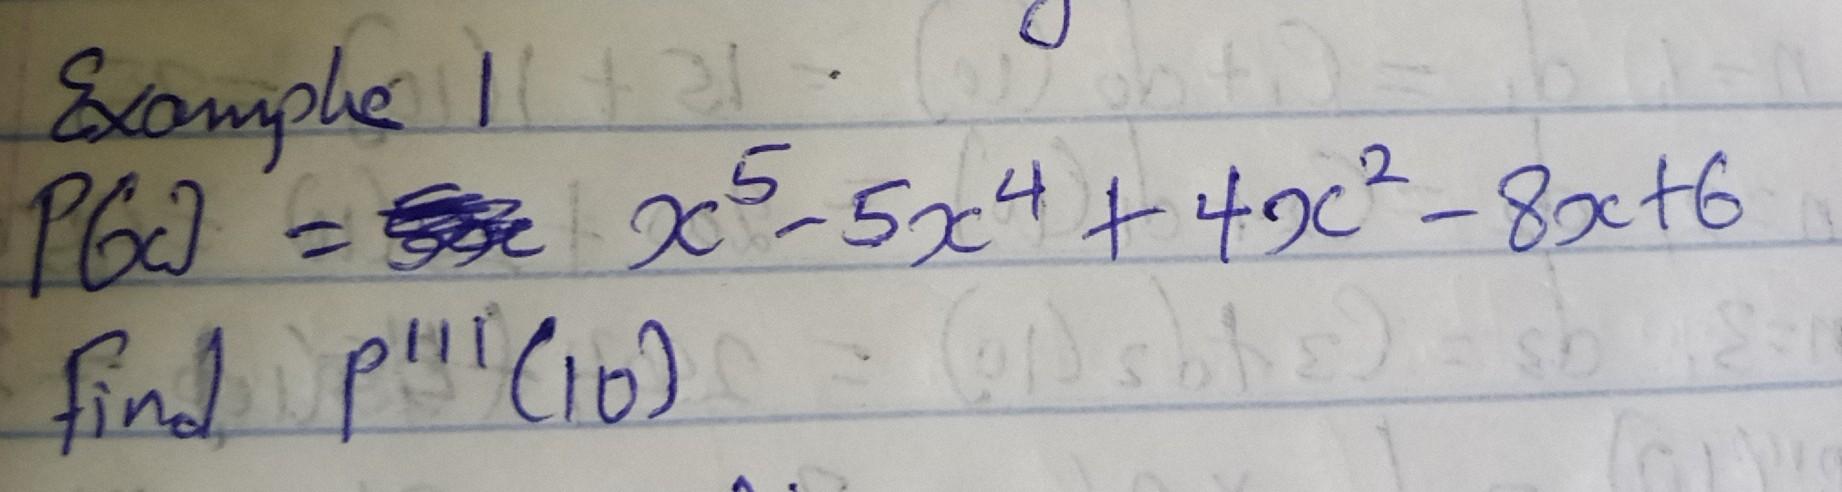 Example 1
P(x) = x⁵ - 5x⁴ + 4x² - 8x + 6
find P'''(10)